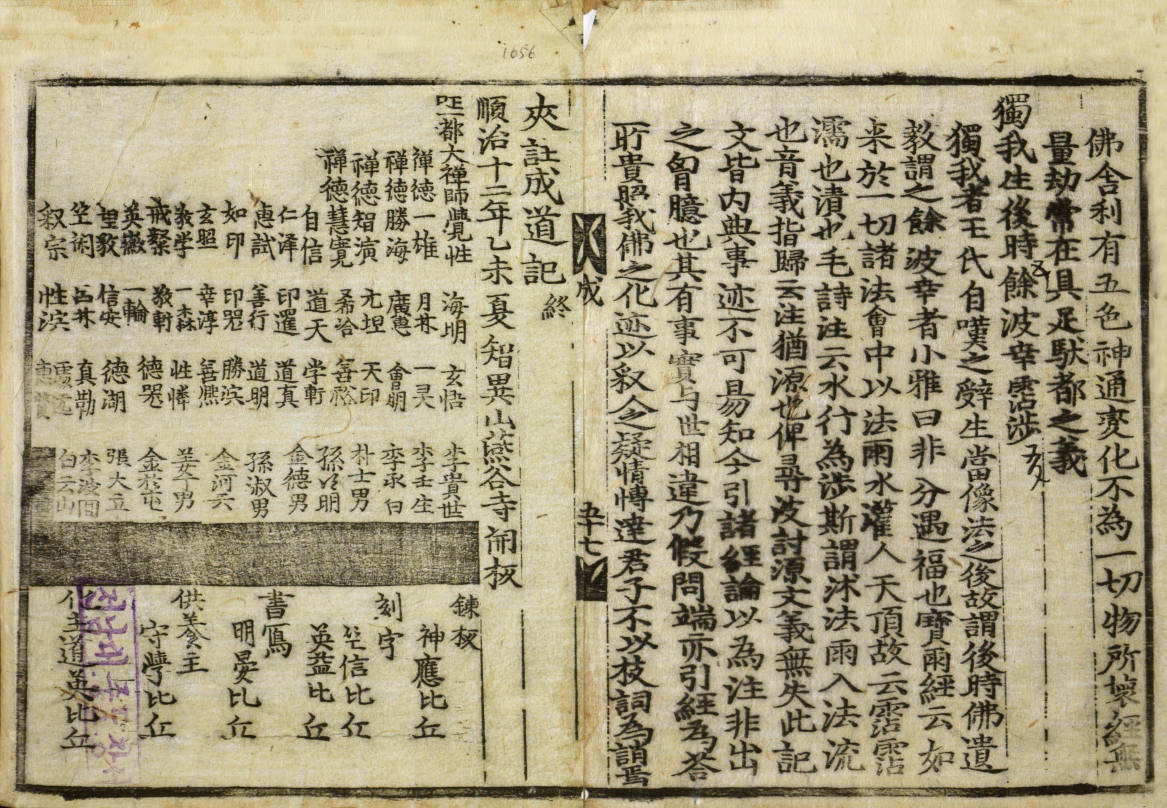 佛舍利有五色神通变化不為一切物所壞經無
量劫常在具足馱都之義
獨我生後時餘波幸霑涉
獨我者王氏自嘆之辞生當像法之後故謂後時佛遺
教謂之餘波幸者小雅曰非分遇福也寶雨經云如
来於一切諸法會中以法雨水灌人天頂故云霑霑
濡也漬也毛詩注云水行為涉斯謂沐法雨入法流
也音義指歸云注猶源也俾尋波討源文義無失此記
文皆內典事迹不可易知今引諸經論以為注非出
之胷臆也其有事實与世相違乃假問端亦引經為答
所貴照我佛之化迹以叙人之疑情博達君子不以枝詞為誚焉
成
五十七
夾註成道記 終
順治十二年乙未夏智異山燕谷寺開板
都大禅師覺性 海明 玄悟 李貴世
禅德一雄 月林 一灵 李壬生
禅德勝海 廣惠 會明 李承白
禅德智演 尢坦 天印 朴士男
禅德慧寛 希 善 孫 明
自信 道天 学軒 金德男
仁泽 印暹 道真 孫淑男
惠試 善行 道明
如印 印 勝 金河
玄照 幸淳 善熈
敬学 一森 性 姜 男
戒 敬軒 德 金
英 一輪 德湖 張大立
聖敎 信安 真 李
叙宗 性 白云山
鍊板
神應比丘
刻字
信比丘
英益比丘
書寫
明晏比丘
供養主
守學比丘
化主道英比丘
1656